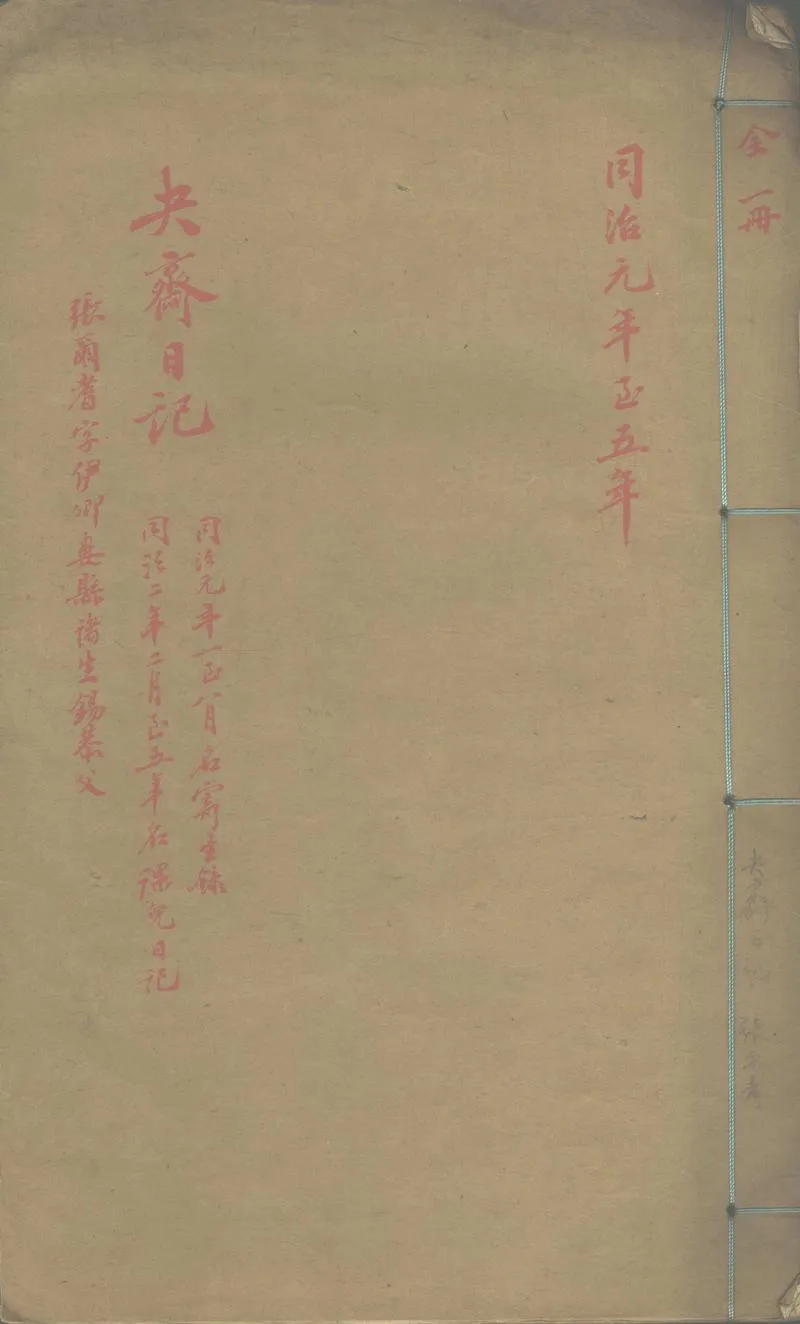 全一冊
同治元年至五年
同治元年一至八月名寄生錄
同治二年二月至五年名課兒日記
夬齋日記
張爾耆字伊卿婁縣諸生錫恭父
夬齋日記 張爾耆